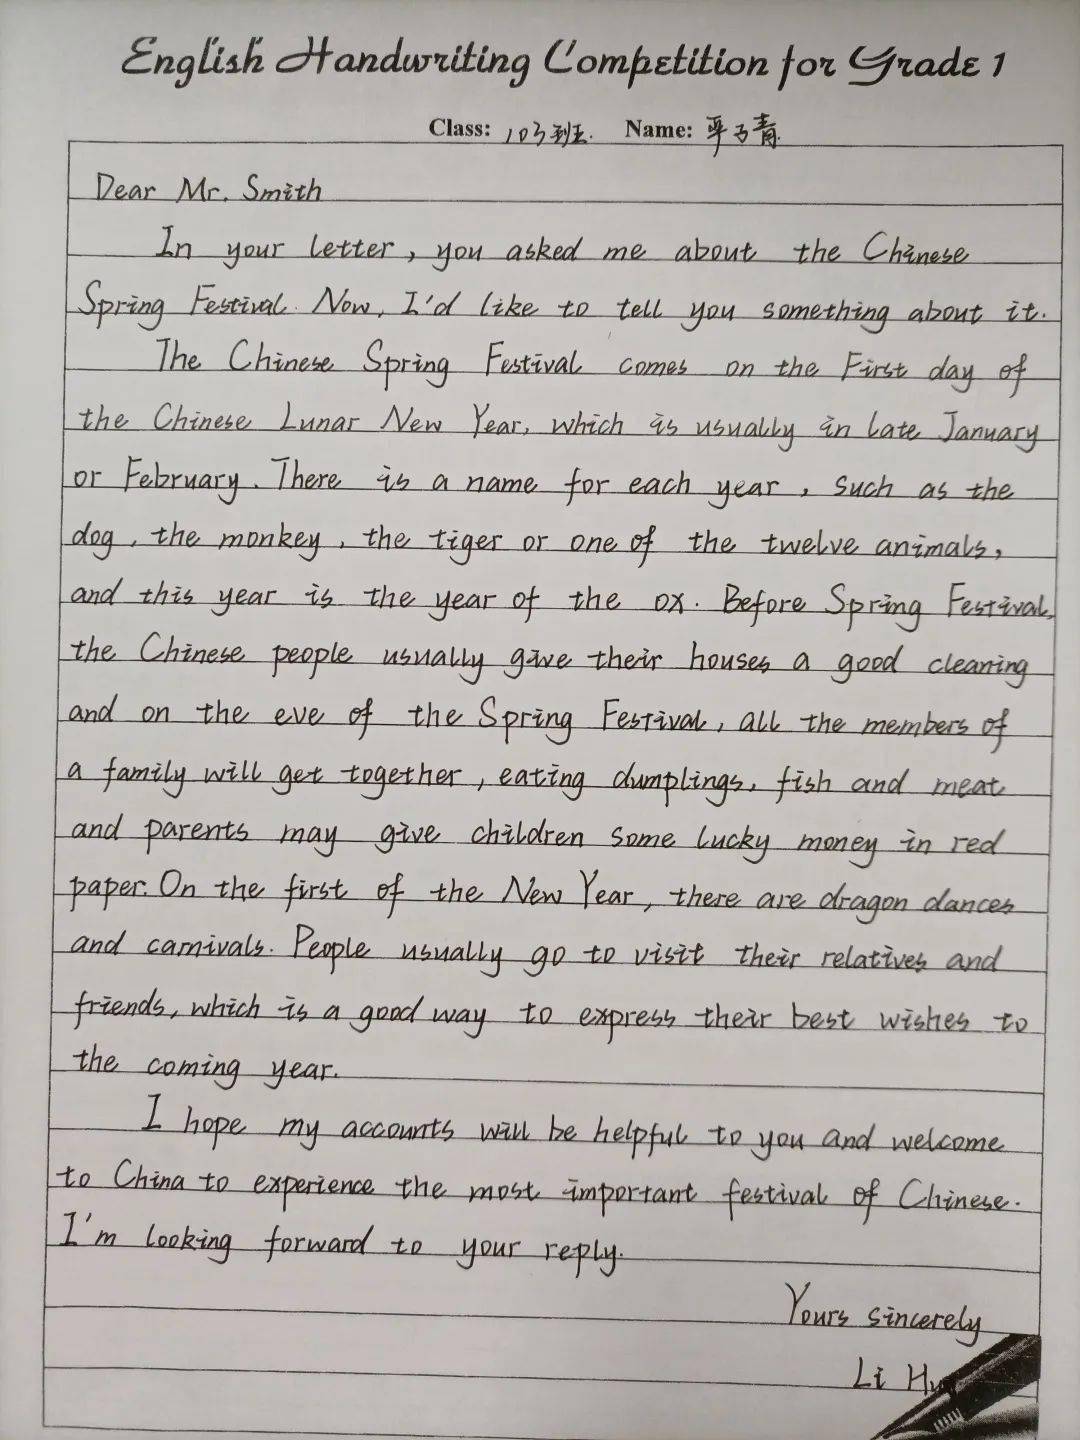 English Handwriting Competition for Grade 1
Class: 103班. Name: 子青
Dear Mr. Smith
In your letter, you asked me about the Chinese
Spring Festival. Now, I'd like to tell you something about it.
The Chinese Spring Festival comes on the First day of
the Chinese Lunar New Year, which is usually in late January
or February. There is a name for each year, such as the
dog, the monkey, the tiger or one of the twelve animals,
and this year is the year of the ox. Before Spring Festival,
the Chinese people usually give their houses a good cleaning
and on the eve of the Spring Festival, all the members of
a family will get together, eating dumplings, fish and meat
and parents may give children some lucky money in red
paper. On the first of the New Year, there are dragon dances
and carnivals. People usually go to visit their relatives and
friends, which is a good way to express their best wishes to
the coming year.
I hope my accounts will be helpful to you and welcome
to China to experience the most important festival of Chinese.
I'm looking forward to your reply.
Yours sincerely
Li